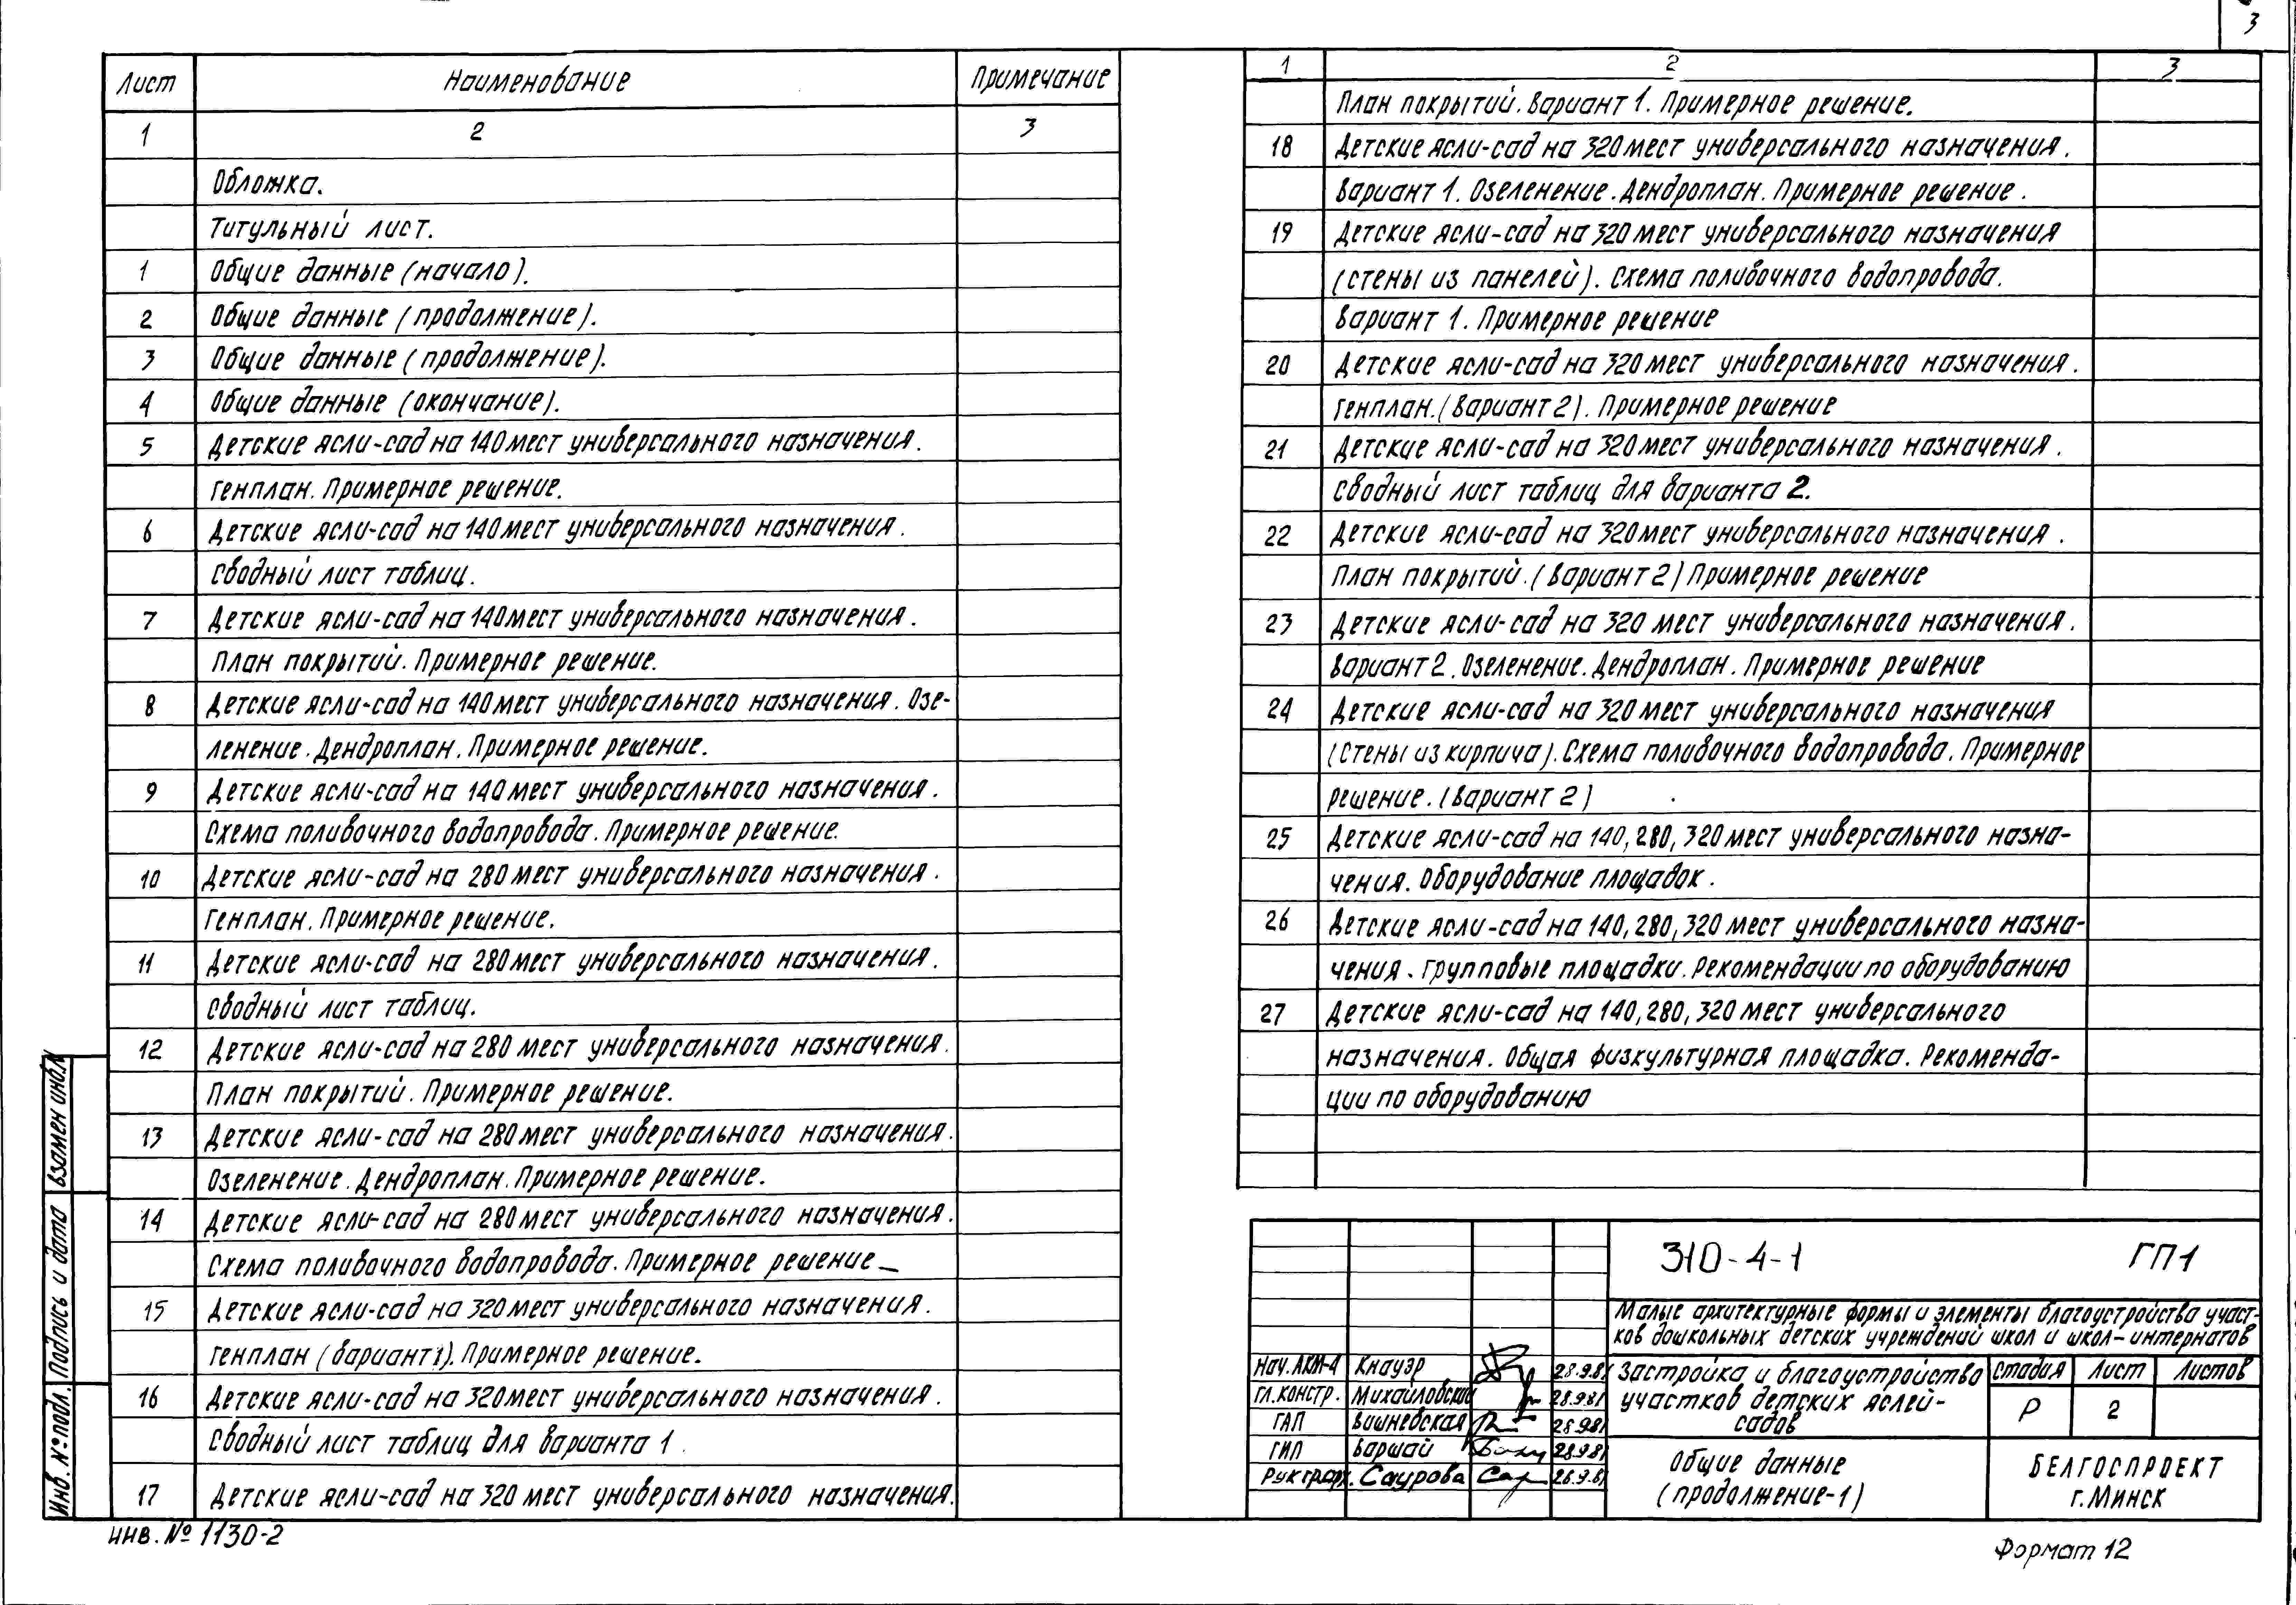 3
Лист Наименование Примечание
1 2 3
Обложка.
Титульный лист.
1 Общие данные (начало).
2 Общие данные (продолжение).
3 Общие данные (продолжение).
4 Общие данные (окончание).
5 Детские ясли-сад на 140 мест универсального назначения.
Генплан. Примерное решение.
6 Детские ясли-сад на 140 мест универсального назначения.
Сводный лист таблиц.
7 Детские ясли-сад на 140 мест универсального назначения.
План покрытий. Примерное решение.
8 Детские ясли-сад на 140 мест универсального назначения. Озе-
ленение. Дендроплан. Примерное решение.
9 Детские ясли-сад на 140 мест универсального назначения.
Схема поливочного водопровода. Примерное решение.
10 Детские ясли-сад на 280 мест универсального назначения.
Генплан. Примерное решение.
11 Детские ясли-сад на 280 мест универсального назначения.
Сводный лист таблиц.
12 Детские ясли-сад на 280 мест универсального назначения.
План покрытий. Примерное решение.
13 Детские ясли-сад на 280 мест универсального назначения.
Озеленение. Дендроплан. Примерное решение.
14 Детские ясли-сад на 280 мест универсального назначения.
Схема поливочного водопровода. Примерное решение
15 Детские ясли-сад на 320 мест универсального назначения.
Генплан (вариант 1). Примерное решение.
16 Детские ясли-сад на 320 мест универсального назначения.
Сводный лист таблиц для варианта 1.
17 Детские ясли-сад на 320 мест универсального назначения.
1 2 3
План покрытий. Вариант 1. Примерное решение.
18 Детские ясли-сад на 320 мест универсального назначения.
Вариант 1. Озеленение. Дендроплан. Примерное решение.
19 Детские ясли-сад на 320 мест универсального назначения
(стены из панелей). Схема поливочного водопровода.
Вариант 1. Примерное решение
20 Детские ясли-сад на 320 мест универсального назначения.
Генплан. (Вариант 2). Примерное решение
21 Детские ясли-сад на 320 мест универсального назначения.
Сводный лист таблиц для варианта 2.
22 Детские ясли-сад на 320 мест универсального назначения.
План покрытий. (Вариант 2) Примерное решение
23 Детские ясли-сад на 320 мест универсального назначения.
Вариант 2. Озеленение. Дендроплан. Примерное решение
24 Детские ясли-сад на 320 мест универсального назначения
(Стены из кирпича). Схема поливочного водопровода. Примерное
решение. (Вариант 2)
25 Детские ясли-сад на 140, 280, 320 мест универсального назна-
чения. Оборудование площадок.
26 Детские ясли-сад на 140, 280, 320 мест универсального назна-
чения. Групповые площадки. Рекомендации по оборудованию
27 Детские ясли-сад на 140, 280, 320 мест универсального
назначения. Общая физкультурная площадка. Рекоменда-
ции по оборудованию
310-4-1 ГП1
Малые архитектурные формы и элементы благоустройства участ-
ков дошкольных детских учреждений школ и школ-интернатов
Нач. АКМ-4 Кнауэр 28.9.81
Гл. констр. Михайловский 28.9.81
ГАП Вишневская 28.9.81
ГИП Варшай 28.9.81
Рук гр. арх. Саурова 28.9.81
Застройка и благоустройство
участков детских яслей-
садов
Стадия Лист Листов
Р 2
Общие данные
(продолжение-1)
БЕЛГОСПРОЕКТ
г. Минск
Взамен инв. №
Подпись и дата
Инв. № подл.
инв. № 1130-2
Формат 12